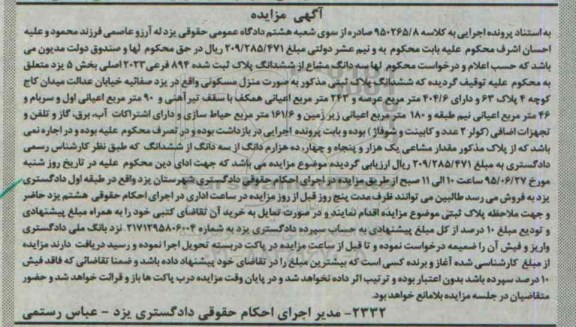 آگهی مزایده
به استناد پرونده اجرایی به کلاسه ۹۵۰۲۶۵/۸ صادره از سوی شعبه هشتم دادگاه عمومی حقوقی یزد له آرزو عاصمی فرزند محمود و علیه
احسان اشرف محکوم علیه بابت محکوم به و نیم عشر دولتی مبلغ ۲۰۹/۲۸۵/۴۷۱ ریال در حق محکوم لها و صندوق دولت مدیون می
باشد که حسب اعلام و درخواست محکوم لها سه دانگ مشاع از ششدانگ پلاک ثبت شده ۸۹۴ فرعی ۲۰۲۳ اصلی بخش ۵ یزد متعلق
به محکوم علیه توقیف گردیده که ششدانگ پلاک ثبتی مذکور به صورت منزل مسکونی واقع در یزد صفائیه خیابان عدالت میدان کاج
کوچه ۴ پلاک ۶۳ و دارای ۴۰۴/۶ متر مربع عرصه و ۲۴۳ متر مربع اعیانی همکف با سقف تیر آهنی و ۹۰ متر مربع اعیانی اول و سربام و
۴۶ متر مربع اعیانی نیم طبقه و ۱۸۰ متر مربع اعیانی زیر زمین و ۱۶۱/۶ متر مربع حیاط سازی و دارای اشتراکات آب، برق، گاز و تلفن و
تجهزات اضافی (کولر ۲ عدد و کابینت و شوفاژ) بوده و بابت پرونده اجرایی در بازداشت بوده و در تصرف محکوم علیه بوده و در اجاره نمی
باشد که از پلاک مذکور مقدار مشاعی یک هزار و پنجاه و چهار، ده هزارم دانگ از سه دانگ از ششدانگ که طبق نظر کارشناس رسمی
دادگستری به مبلغ ۲۰۹/۲۸۵/۴۷۱ ریال ارزیابی گردیده، موضوع مزایده می باشد که جهت ادای دین محکوم علیه در تاریخ روز شنبه
مورخ ۹۵/۰۶/۲۷ ساعت ۱۰ الی ۱۱ صبح از طریق مزایده در اجرای احکام حقوقی دادگستری شهرستان یزد واقع در طبقه اول دادگستری
یزد به فروش می رسد طالبین می توانند ظرف مدت پنج روز قبل از روز مزایده در ساعت اداری در اجرای احکام حقوقی هشتم یزد حاضر
و جهت ملاحظه پلاک ثبتی موضوع مزایده اقدام نمایند و در صورت تمایل به خرید آن تقاضای کتبی خود را به همراه مبلغ پیشنهادی
و تودیع مبلغ ۱۰ درصد از کل مبلغ پیشنهادی به حساب سپرده دادگستری یزد به شماره ۲۱۷۱۲۹۵۸۰۶۰۰۴ نزد بانک ملی دادگستری
واریز و فیش آن را ضمیمه درخواست نموده و تا قبل از ساعت مزایده در پاکت دربسته تحویل اجرا نموده و رسید دریافت دارند مزایده
از مبلغ کارشناسی شده آغاز و برنده کسی است که بیشترین مبلغ را در تقاضای خود پیشنهاد داده باشد و ضمنا تقاضائی که فاقد فیش
۱۰ درصد سپرده باشد بدون اعتبار بوده و ترتیب اثر داده نخواهد شد و در پایان وقت مزایده درب پاکت ها باز و قرائت خواهد شد و حضور
متقاضیان در جلسه مزایده بلامانع خواهد بود.
۲۳۳۲- مدیر اجرای احکام حقوقی دادگستری یزد - عباس رستمی